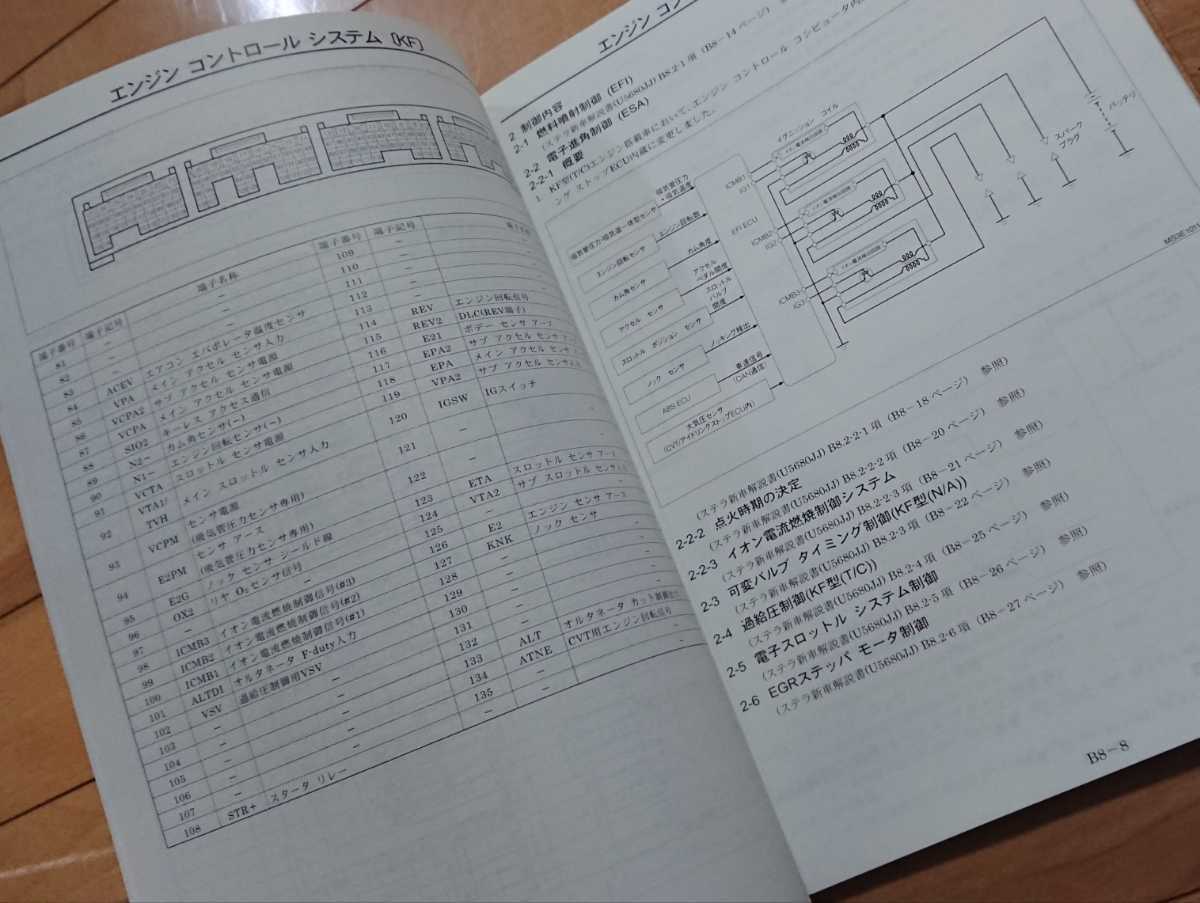 エンジン コントロール システム (KF)
端子番号 端子記号 端子名称 端子番号 端子記号
81 － － 109 －
82 － － 110 －
83 ACEV エアコン エバポレータ温度センサ 111 －
84 VPA メイン アクセル センサ入力 112 －
85 VCPA2 サブ アクセル センサ電源 113 REV エンジン回転信号
86 VCPA メイン アクセル センサ電源 114 REV2 DLC(REV端子)
87 SIO2 キーレス アクセス通信 115 E21 ボデー センサ アース
88 N2－ カム角センサ(－) 116 EPA2 サブ アクセル センサ アース
89 N1－ エンジン回転センサ(－) 117 EPA メイン アクセル センサ アース
90 VCTA スロットル センサ電源 118 VPA2 サブ アクセル センサ入力
91 VTA1/ メイン スロットル センサ入力 119
TVH 120 IGSW IGスイッチ
92 VCPM センサ電源
(吸気管圧力センサ専用) 121 －
93 E2PM センサ アース
(吸気管圧力センサ専用) 122 －
94 E2G ノック センサ シールド線 123 ETA スロットル センサ アース
95 OX2 リヤ O₂センサ信号 124 VTA2 サブ スロットル センサ入力
96 － － 125 －
97 ICMB3 イオン電流燃焼制御信号(#3) 126 E2 エンジン センサ アース
98 ICMB2 イオン電流燃焼制御信号(#2) 127 KNK ノック センサ
99 ICMB1 イオン電流燃焼制御信号(#1) 128 －
100 ALTD1 オルタネータ F-duty入力 129 －
101 VSV 過給圧制御用VSV 130 －
102 － － 131 －
103 － － 132 ALT オルタネータ カット制御
104 － － 133 ATNE CVT用エンジン回転信号
105 － － 134 －
106 － － 135 －
107 － －
108 STR+ スタータ リレー
エンジン コン
2 制御内容
2-1 燃料噴射制御 (EFI)
(ステラ新車解説書(U5680JJ) B8.2-1 項 (B8－14 ページ)
2-2 電子進角制御 (ESA)
2-2-1 概要
1. KF型(T/C)エンジン搭載車において、エンジン コントロール コンピュータ内
ング ストップECU内蔵に変更しました。
吸気管圧力・吸気温一体型センサ
吸気管圧力
・吸気温度
エンジン回転センサ
エンジン回転数
カム角センサ
カム角度
アクセル センサ
アクセル
ペダル開度
スロットル ポジション センサ
スロットル
バルブ
開度
ノック センサ
ノッキング検出
ABS ECU
車速信号
(CAN通信)
大気圧センサ
(CVT/アイドリングストップECU内)
EFI ECU
ICMB1
IG1
ICMB2
IG2
ICMB3
IG3
イグニッション コイル
イオン電流検出回路
イオン電流検出回路
イオン電流検出回路
スパーク
プラグ
バッテリ
(ステラ新車解説書(U5680JJ) B8.2-2-1 項 (B8－18 ページ) 参照)
2-2-2 点火時期の決定
(ステラ新車解説書(U5680JJ) B8.2-2-2 項 (B8－20 ページ) 参照)
2-2-3 イオン電流燃焼制御システム
(ステラ新車解説書(U5680JJ) B8.2-2-3 項 (B8－21 ページ) 参照)
2-3 可変バルブ タイミング制御(KF型(N/A))
(ステラ新車解説書(U5680JJ) B8.2-3 項 (B8－22 ページ) 参照)
2-4 過給圧制御(KF型(T/C))
(ステラ新車解説書(U5680JJ) B8.2-4 項 (B8－25 ページ) 参照)
2-5 電子スロットル システム制御
(ステラ新車解説書(U5680JJ) B8.2-5 項 (B8－26 ページ) 参照)
2-6 EGRステッパ モータ制御
(ステラ新車解説書(U5680JJ) B8.2-6 項 (B8－27 ページ) 参照)
B8－8